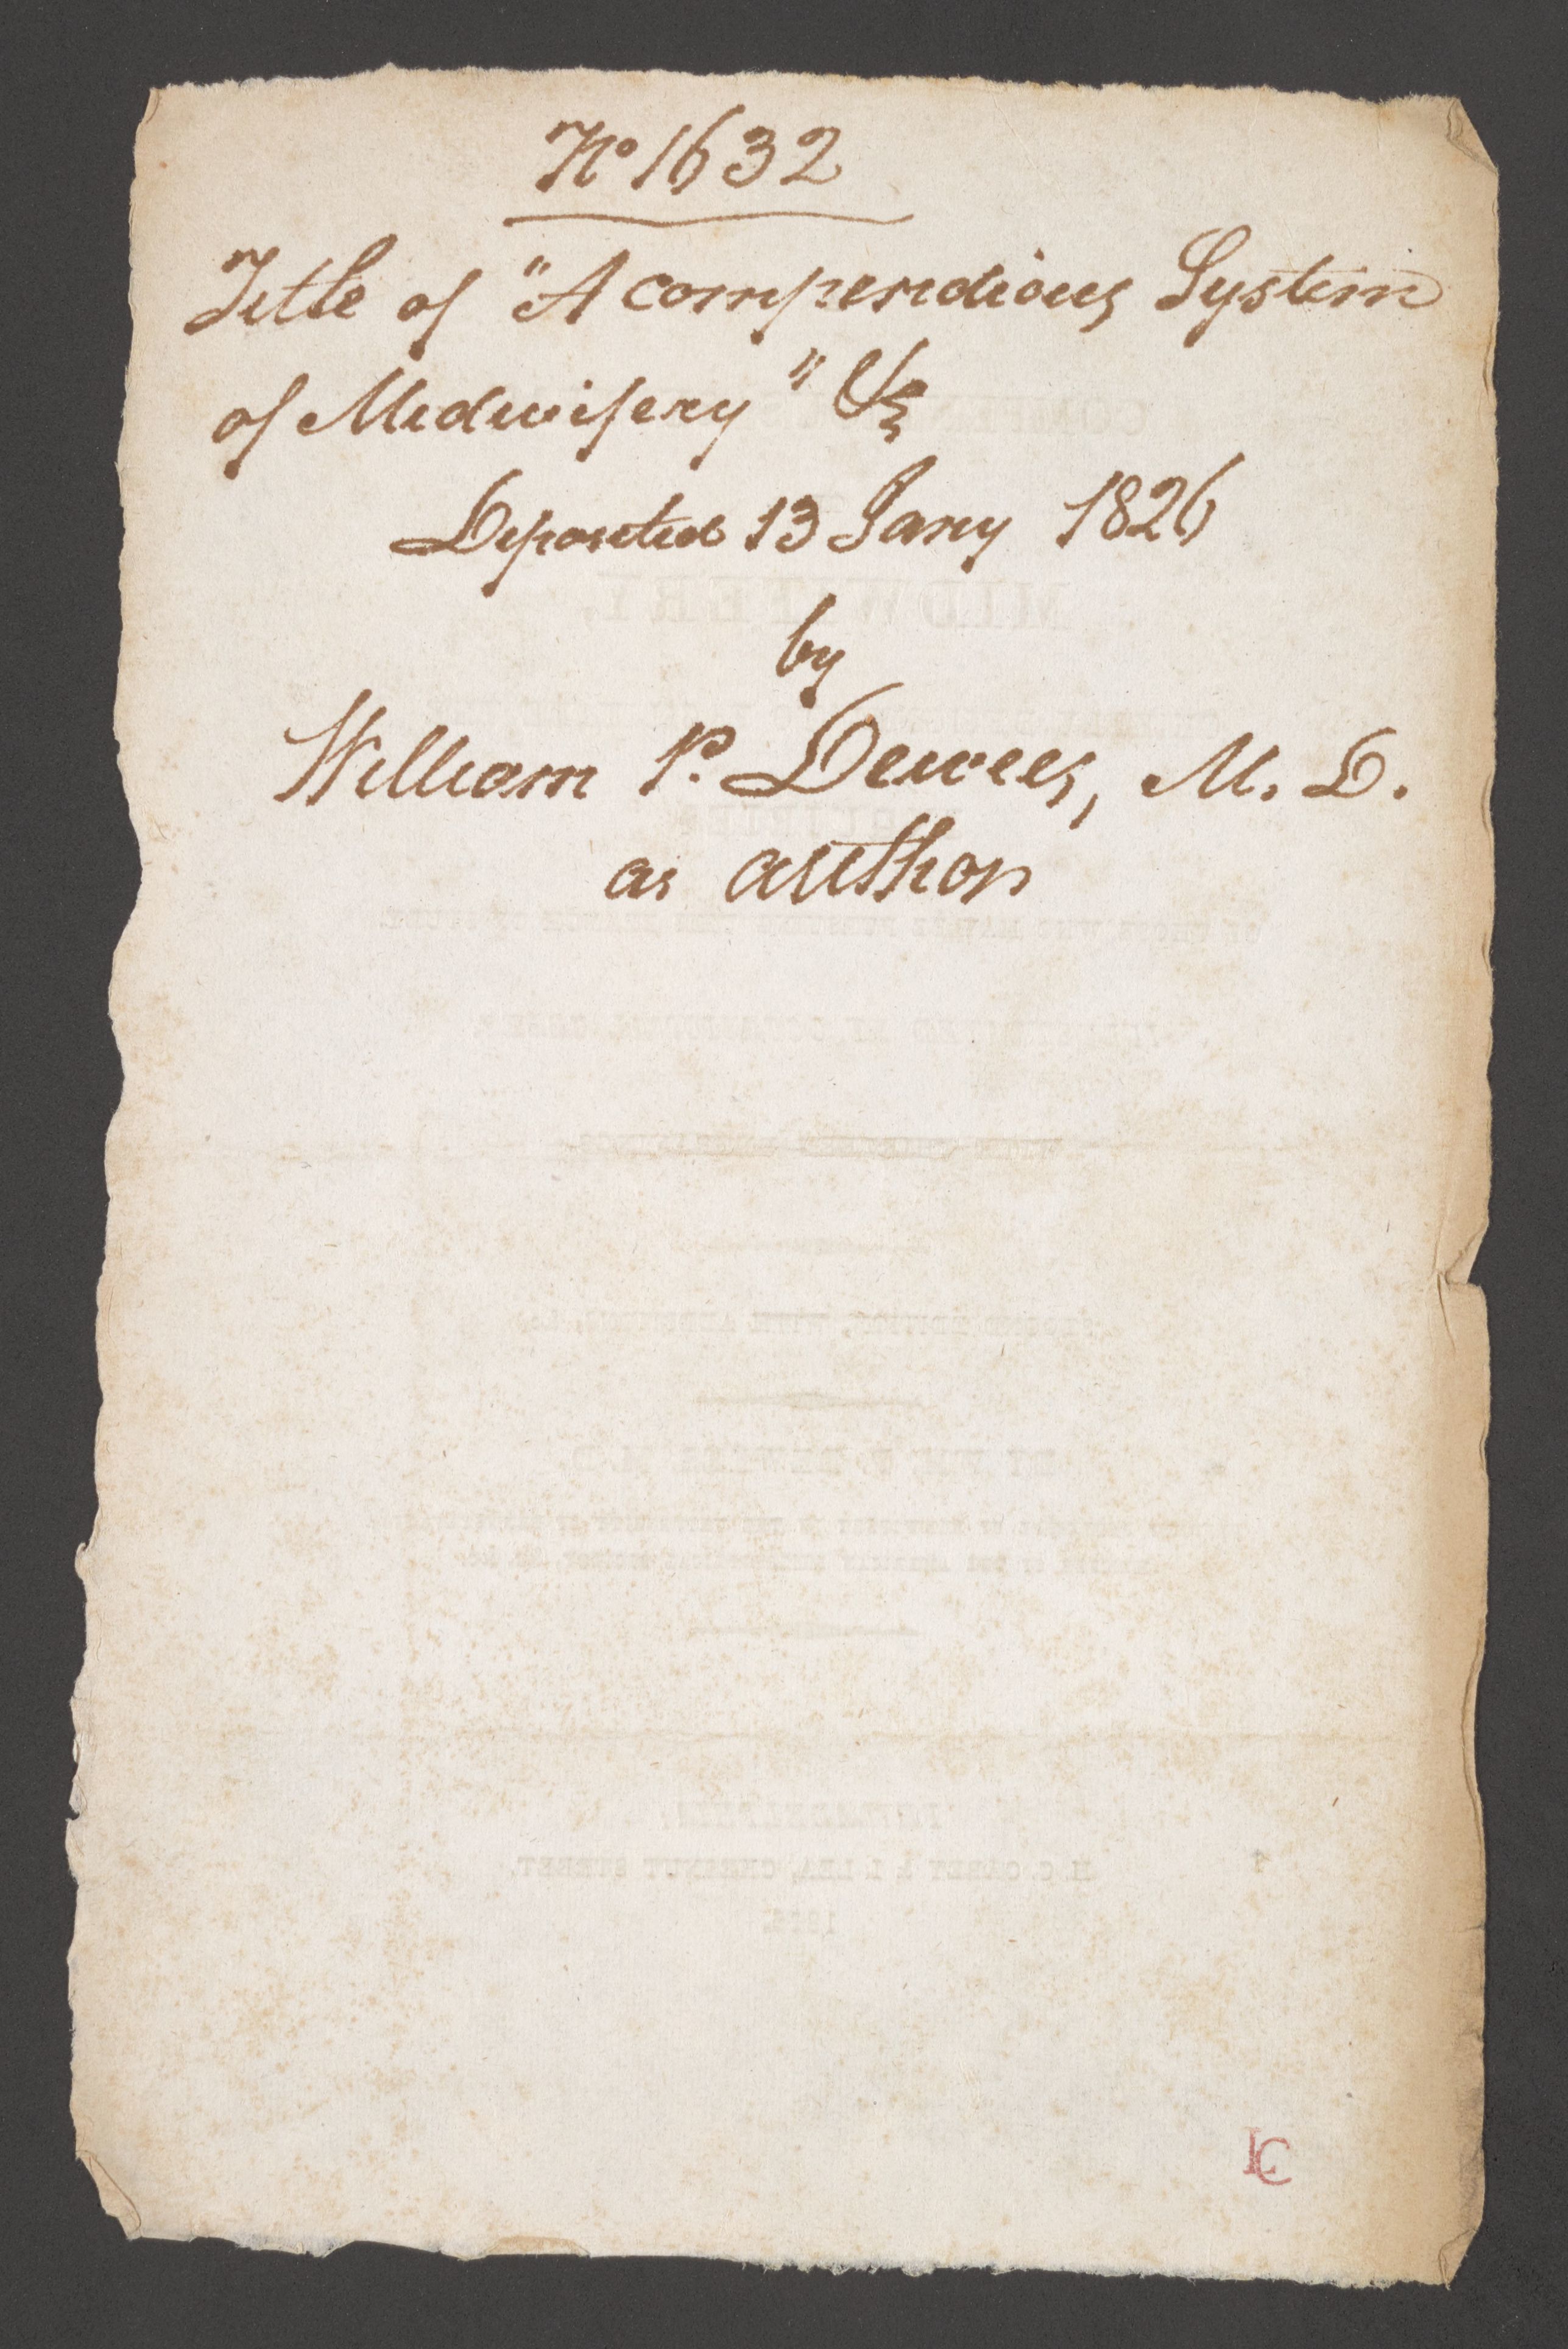 No 1632
Title of "A compendious System
of Midwifery" &c
Deposited 13 Jany 1826
by
William P. Dewees, M. D.
as author
LC